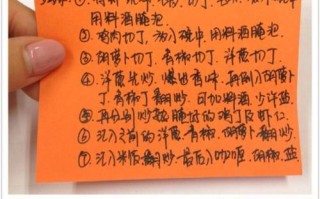 用料酒腌泡
②.鸡肉切丁,放入碗中,用料酒腌泡.
③.胡萝卜切丁,青椒切丁,洋葱切丁
④.洋葱先炒,爆出香味,再倒入胡萝卜
丁,青椒丁翻炒,可加料酒,少许盐
⑤.再分别炒熟腌过的鸡丁及虾仁
⑥.放入之前的洋葱,青椒,胡萝卜翻炒.
⑦.放入米饭翻炒,最后入咖喱,胡椒,盐